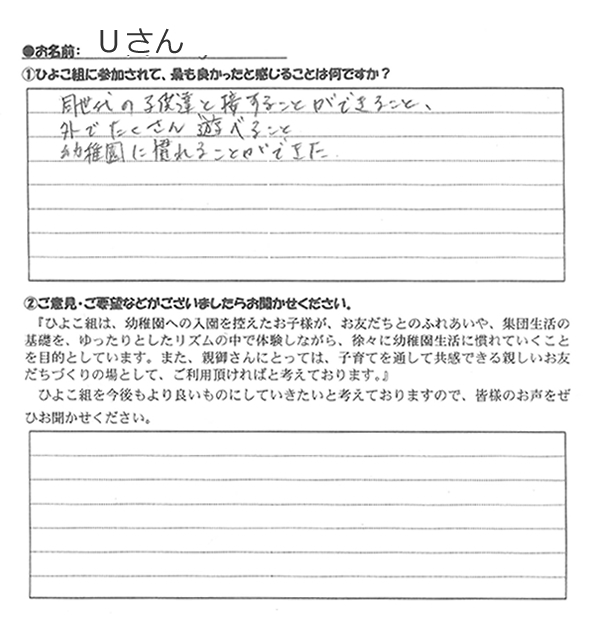 ●お名前: Uさん
①ひよこ組に参加されて、最も良かったと感じることは何ですか？
同世代の子供達と接することができること、
外でたくさん遊べること
幼稚園に慣れることができた.
②ご意見・ご要望などがございましたらお聞かせください。
『ひよこ組は、幼稚園への入園を控えたお子様が、お友だちとのふれあいや、集団生活の
基礎を、ゆったりとしたリズムの中で体験しながら、徐々に幼稚園生活に慣れていくこと
を目的としています。また、親御さんにとっては、子育てを通して共感できる親しいお友
だちづくりの場として、ご利用頂ければと考えております。』
ひよこ組を今後もより良いものにしていきたいと考えておりますので、皆様のお声をぜ
ひお聞かせください。